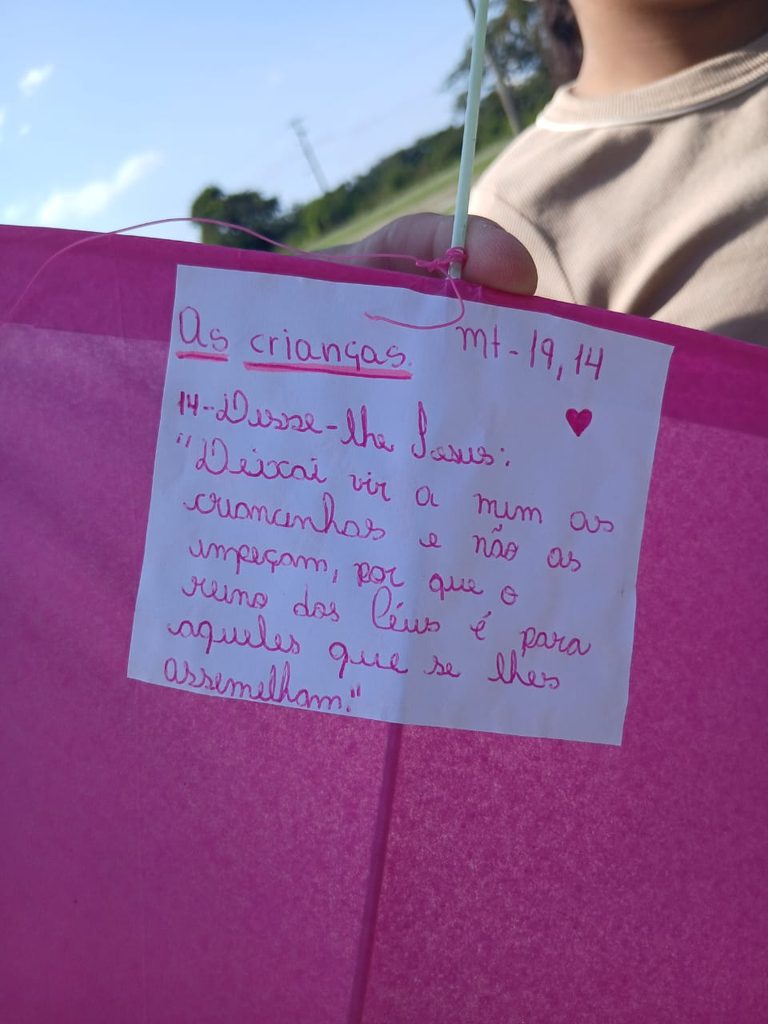 As crianças. Mt - 19, 14
14 - Disse-lhe Jesus:
"Deixai vir a mim as
criancinhas e não as
impeçam, por que o
reino dos Céus é para
aqueles que se lhes
assemelham."